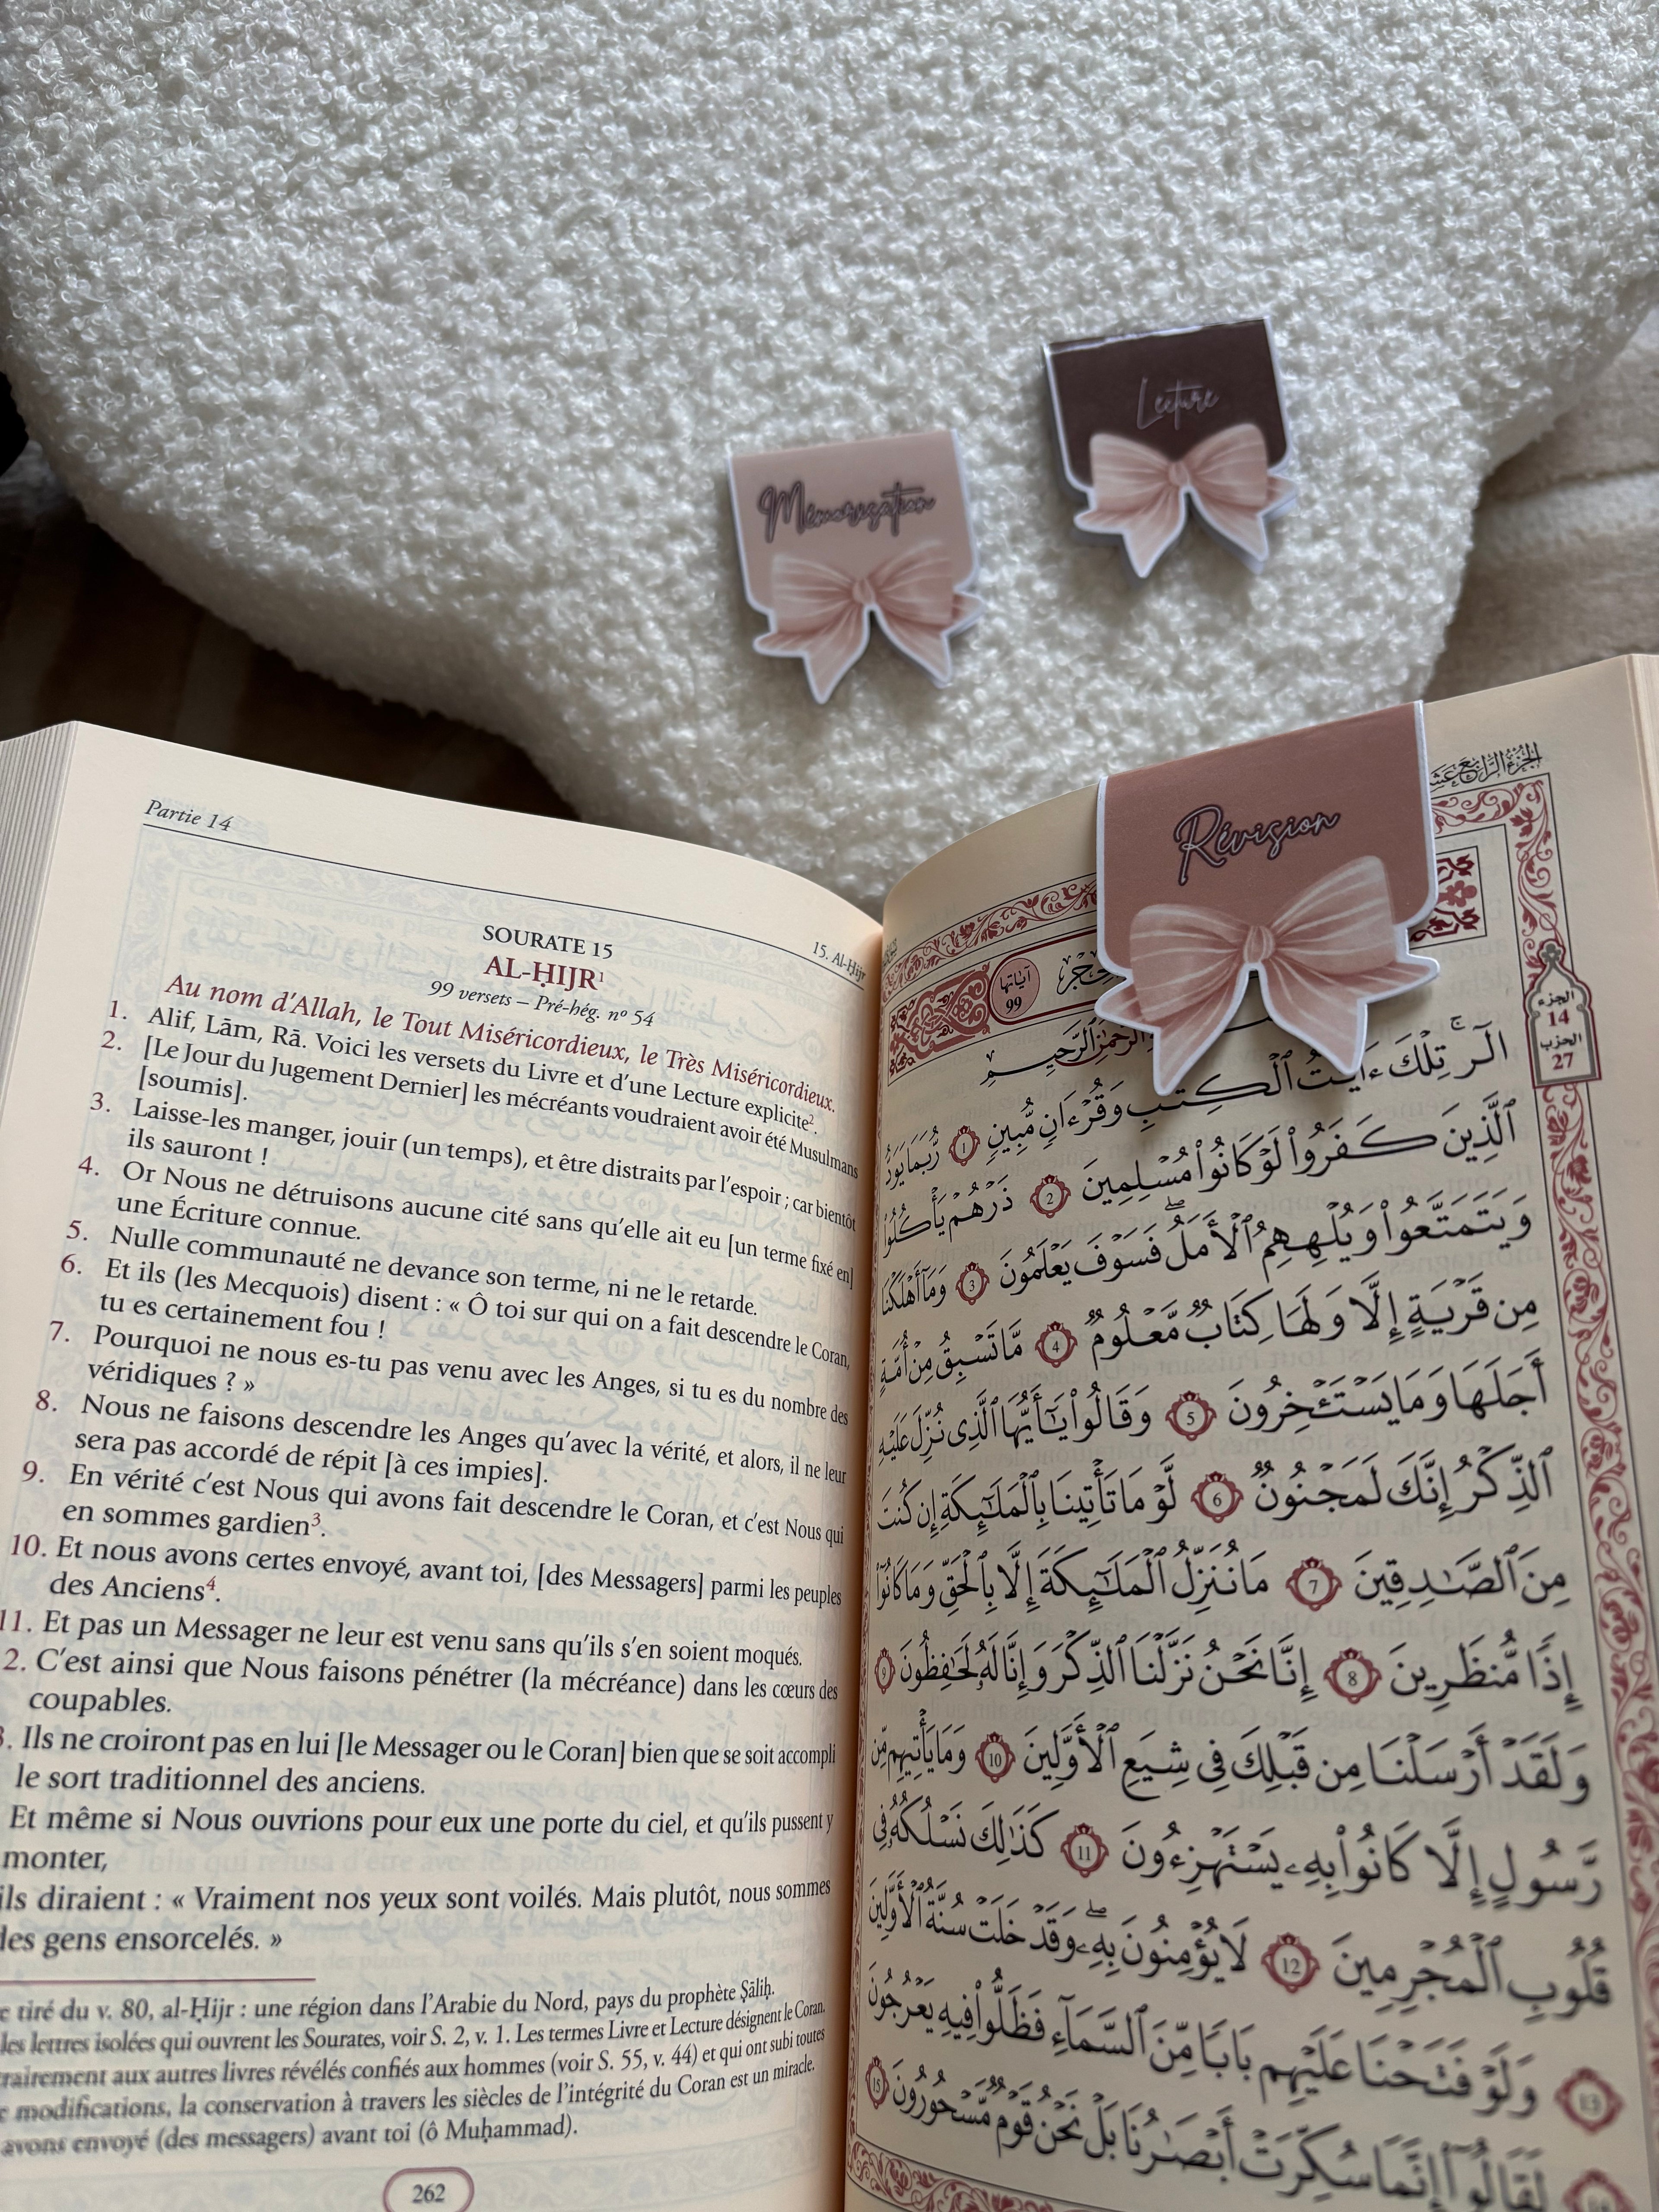 Lecture
Mémorisation
Révision
Partie 14
15. Al-Ḥijr
SOURATE 15
AL-ḤIJR¹
99 versets – Pré-hég. nº 54
Au nom d'Allah, le Tout Miséricordieux, le Très Miséricordieux.
1. Alif, Lām, Rā. Voici les versets du Livre et d'une Lecture explicite².
2. [Le Jour du Jugement Dernier] les mécréants voudraient avoir été Musulmans
[soumis].
3. Laisse-les manger, jouir (un temps), et être distraits par l'espoir ; car bientôt
ils sauront !
4. Or Nous ne détruisons aucune cité sans qu'elle ait eu [un terme fixé en]
une Écriture connue.
5. Nulle communauté ne devance son terme, ni ne le retarde.
6. Et ils (les Mecquois) disent : « Ô toi sur qui on a fait descendre le Coran,
tu es certainement fou !
7. Pourquoi ne nous es-tu pas venu avec les Anges, si tu es du nombre des
véridiques ? »
8. Nous ne faisons descendre les Anges qu'avec la vérité, et alors, il ne leur
sera pas accordé de répit [à ces impies].
9. En vérité c'est Nous qui avons fait descendre le Coran, et c'est Nous qui
en sommes gardien³.
10. Et nous avons certes envoyé, avant toi, [des Messagers] parmi les peuples
des Anciens⁴.
11. Et pas un Messager ne leur est venu sans qu'ils s'en soient moqués.
2. C'est ainsi que Nous faisons pénétrer (la mécréance) dans les cœurs des
coupables.
. Ils ne croiront pas en lui [le Messager ou le Coran] bien que se soit accompli
le sort traditionnel des anciens.
Et même si Nous ouvrions pour eux une porte du ciel, et qu'ils pussent y
monter,
ils diraient : « Vraiment nos yeux sont voilés. Mais plutôt, nous sommes
des gens ensorcelés. »
tiré du v. 80, al-Ḥijr : une région dans l'Arabie du Nord, pays du prophète Ṣāliḥ.
les lettres isolées qui ouvrent les Sourates, voir S. 2, v. 1. Les termes Livre et Lecture désignent le Coran.
trairement aux autres livres révélés confiés aux hommes (voir S. 55, v. 44) et qui ont subi toutes
modifications, la conservation à travers les siècles de l'intégrité du Coran est un miracle.
avons envoyé (des messagers) avant toi (ô Muḥammad).
262
الجزء الرابع عشر
الجزء
14
الحزب
27
آياتها
99
الٓر تِلْكَ ءَايَٰتُ ٱلْكِتَٰبِ وَقُرْءَانٍ مُّبِينٍ 1 رُّبَمَا يَوَدُّ
ٱلَّذِينَ كَفَرُوا۟ لَوْ كَانُوا۟ مُسْلِمِينَ 2 ذَرْهُمْ يَأْكُلُوا۟
وَيَتَمَتَّعُوا۟ وَيُلْهِهِمُ ٱلْأَمَلُ فَسَوْفَ يَعْلَمُونَ 3 وَمَآ أَهْلَكْنَا
مِن قَرْيَةٍ إِلَّا وَلَهَا كِتَابٌ مَّعْلُومٌ 4 مَّا تَسْبِقُ مِنْ أُمَّةٍ
أَجَلَهَا وَمَا يَسْتَـْٔخِرُونَ 5 وَقَالُوا۟ يَٰٓأَيُّهَا ٱلَّذِى نُزِّلَ عَلَيْهِ
ٱلذِّكْرُ إِنَّكَ لَمَجْنُونٌ 6 لَّوْ مَا تَأْتِينَا بِٱلْمَلَٰٓئِكَةِ إِن كُنتَ
مِنَ ٱلصَّٰدِقِينَ 7 مَا نُنَزِّلُ ٱلْمَلَٰٓئِكَةَ إِلَّا بِٱلْحَقِّ وَمَا كَانُوٓا۟
إِذًا مُّنظَرِينَ 8 إِنَّا نَحْنُ نَزَّلْنَا ٱلذِّكْرَ وَإِنَّا لَهُۥ لَحَٰفِظُونَ 9
وَلَقَدْ أَرْسَلْنَا مِن قَبْلِكَ فِى شِيَعِ ٱلْأَوَّلِينَ 10 وَمَا يَأْتِيهِم مِّن
رَّسُولٍ إِلَّا كَانُوا۟ بِهِۦ يَسْتَهْزِءُونَ 11 كَذَٰلِكَ نَسْلُكُهُۥ فِى
قُلُوبِ ٱلْمُجْرِمِينَ 12 لَا يُؤْمِنُونَ بِهِۦ وَقَدْ خَلَتْ سُنَّةُ ٱلْأَوَّلِينَ
13 وَلَوْ فَتَحْنَا عَلَيْهِم بَابًا مِّنَ ٱلسَّمَآءِ فَظَلُّوا۟ فِيهِ يَعْرُجُونَ
لَقَالُوٓا۟ إِنَّمَا سُكِّرَتْ أَبْصَٰرُنَا بَلْ نَحْنُ قَوْمٌ مَّسْحُورُونَ 15